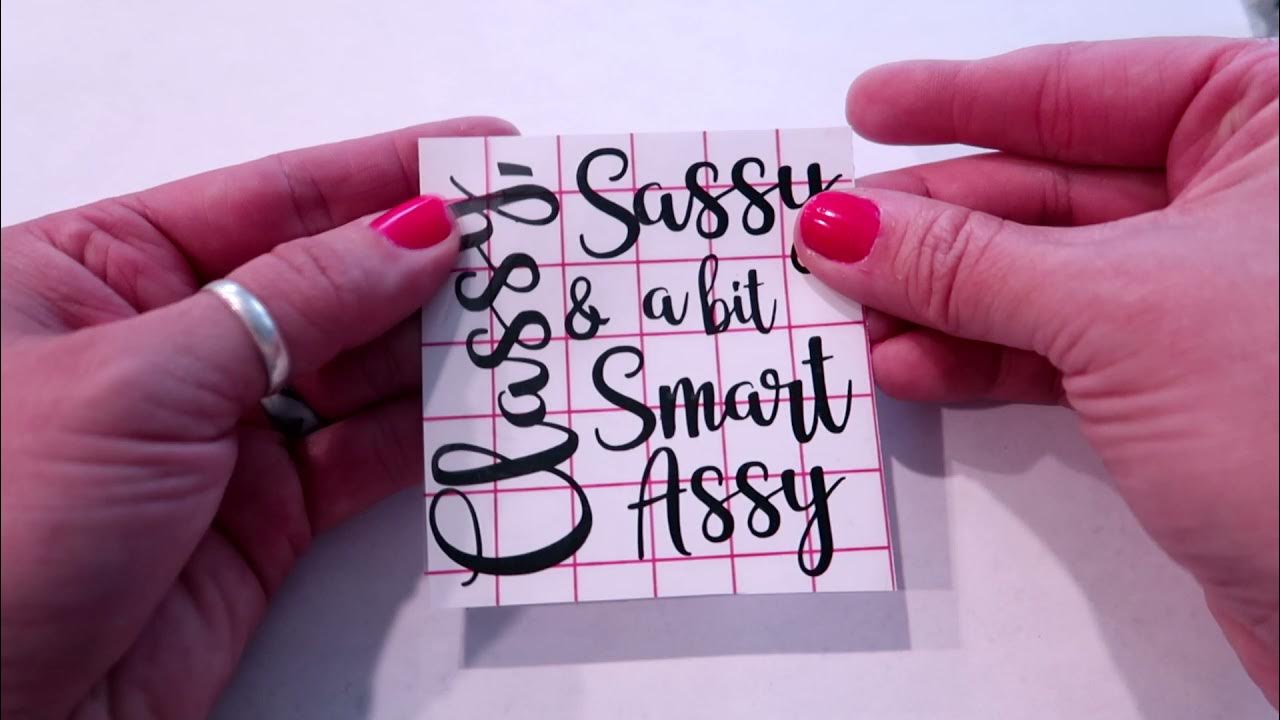 Classy
Sassy
& a bit
Smart
Assy